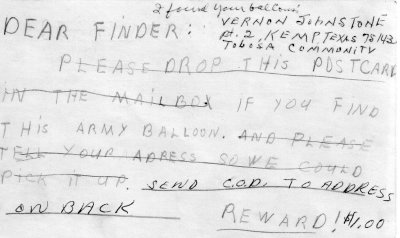 I found your balloon!
VERNON JOHNSTONE
Rt. 2, KEMP TEXAS 75143
TOBOSA COMMUNITY
DEAR FINDER:
PLEASE DROP THIS POSTCARD
IN THE MAILBOX IF YOU FIND
THIS ARMY BALLOON. AND PLEASE
TELL YOUR ADRESS SO WE COULD
PICK IT UP. SEND C.O.D. TO ADDRESS
ON BACK REWARD! $1.00